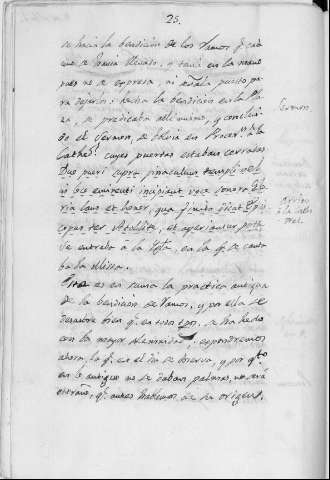 25.
se hacia la bendicion de los Ramos q.e cada
uno se havia llevado, y tanto en la
pues no se expresa, ni
para dejarlos: hecha la bendicion en la Pla
za, se predicaba alli mismo, y conclui
do el Sermon, se bolvia en Proces.n à la
Cathed.l cuyas puertas estaban cerradas
Duo pueri supra pinaculum templi vel
in loco eminenti incipiant voce sonora Glo
ria laus et honor, qua finita dicat Epis
copus ter Attollite, et aperiantur porte
Se entraba à la Igl.a, en la q.e se canta
ba la Missa.
Esta es en suma la practica antigua
de la bendicion de Ramos, y por ella se
descubre bien q.e en todos tpos, se ha hecho
con la mayor solemnidad, expondremos
ahora, lo q.e en el dia se observa, y por q.to
en lo antiguo no se daban palmas, no será
extraño, q.e antes hablemos de su origen,
Sermon.
Arribo
à la cathe
dral.